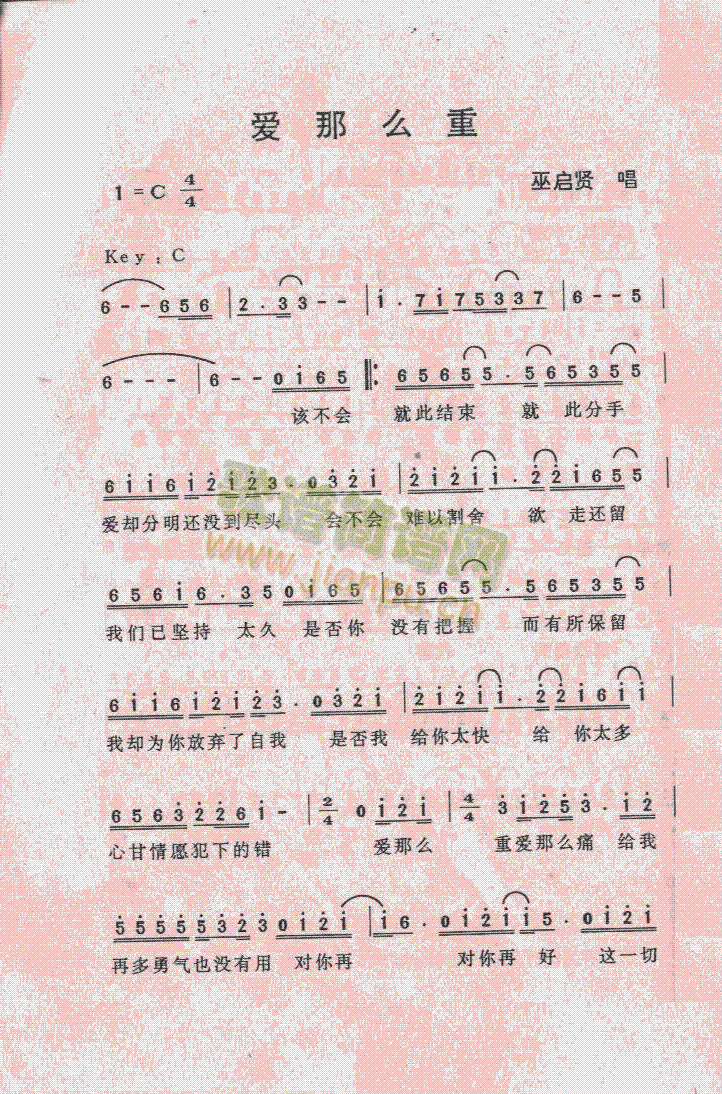 爱那么重
1=C 4/4
巫启贤 唱
Key：C
6--656|2·33--|i·7i75337|6--5|
6---|6--0i65‖:65655·565355|
该不会 就此结束 就 此分手
6ii6i2i23·032i|2i2ii·22i655|
爱却分明还没到尽头 会不会 难以割舍 欲 走还留
656i6·350i65|65655·565355|
我们已坚持 太久 是否你 没有把握 而有所保留
6ii6i2i23·032i|2i2ii·22i6ii|
我却为你放弃了自我 是否我 给你太快 给 你太多
6563226i-|2/4 0i2i|4/4 3i253·i2|
心甘情愿犯下的错 爱那么 重爱那么痛 给我
555553230i2i|i6·0i2ii5·0i2i
再多勇气也没有用 对你再 对你再 好 这一切
歌谱简谱网
www.jianpu.cn